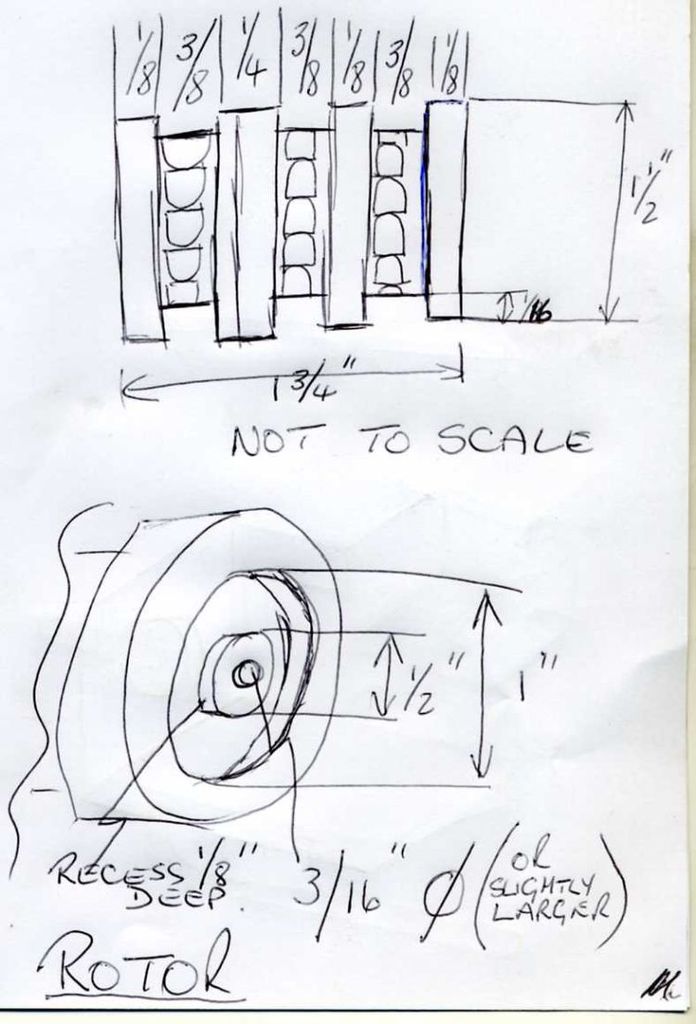 1/8 3/8 1/4 3/8 1/8 3/8 1/8
1 1/2"
1/16
1 3/4"
NOT TO SCALE
1/2" 1"
RECESS 1/8" DEEP.
3/16" Ø (OR SLIGHTLY LARGER)
ROTOR